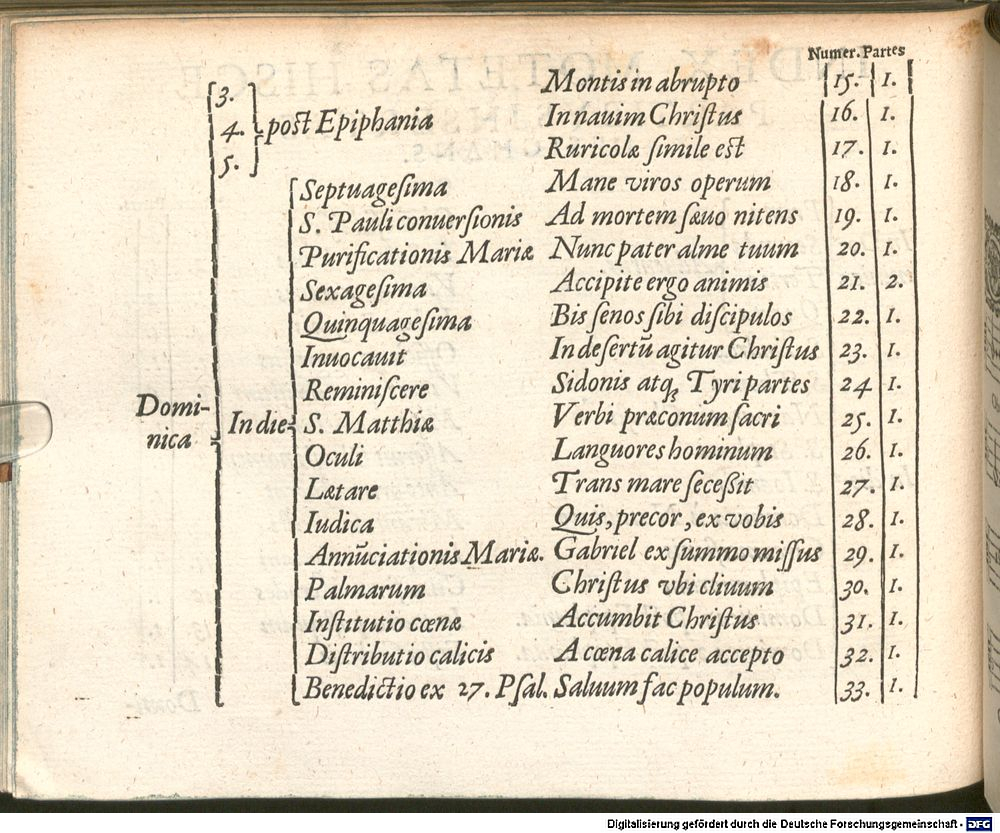 Numer. Partes
3. Montis in abrupto 15. 1.
4. post Epiphania In nauim Chriſtus 16. 1.
5. Ruricolæ ſimile eſt 17. 1.
Septuageſima Mane viros operum 18. 1.
S. Pauli conuerſionis Ad mortem ſæuo nitens 19. 1.
Purificationis Mariæ Nunc pater alme tuum 20. 1.
Sexageſima Accipite ergo animis 21. 2.
Quinquageſima Bis ſenos ſibi diſcipulos 22. 1.
Inuocauit In deſertũ agitur Chriſtus 23. 1.
Reminiſcere Sidonis atqꝫ Tyri partes 24 1.
Domi-
nica In die S. Matthiæ Verbi præconum ſacri 25. 1.
Oculi Languores hominum 26. 1.
Lætare Trans mare ſeceßit 27. 1.
Iudica Quis, precor, ex vobis 28. 1.
Annũciationis Mariæ. Gabriel ex ſummo miſſus 29. 1.
Palmarum Chriſtus vbi cliuum 30. 1.
Inſtitutio cœnæ Accumbit Chriſtus 31. 1.
Diſtributio calicis A cœna calice accepto 32. 1.
Benedictio ex 27. Pſal. Saluum fac populum. 33. 1.
Digitalisierung gefördert durch die Deutsche Forschungsgemeinschaft - DFG